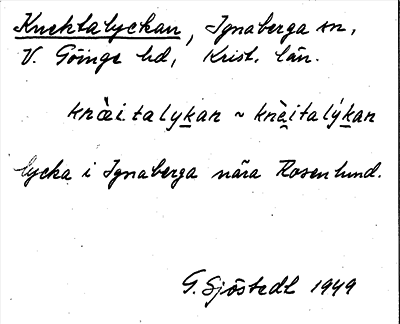 Knektalyckan, Ignaberga sn,
V. Göinge hd, Krist. län.
knæ̀italykan ~ knèitalýkan
lycka i Ignaberga nära Rosenlund.
G. Sjöstedt 1949